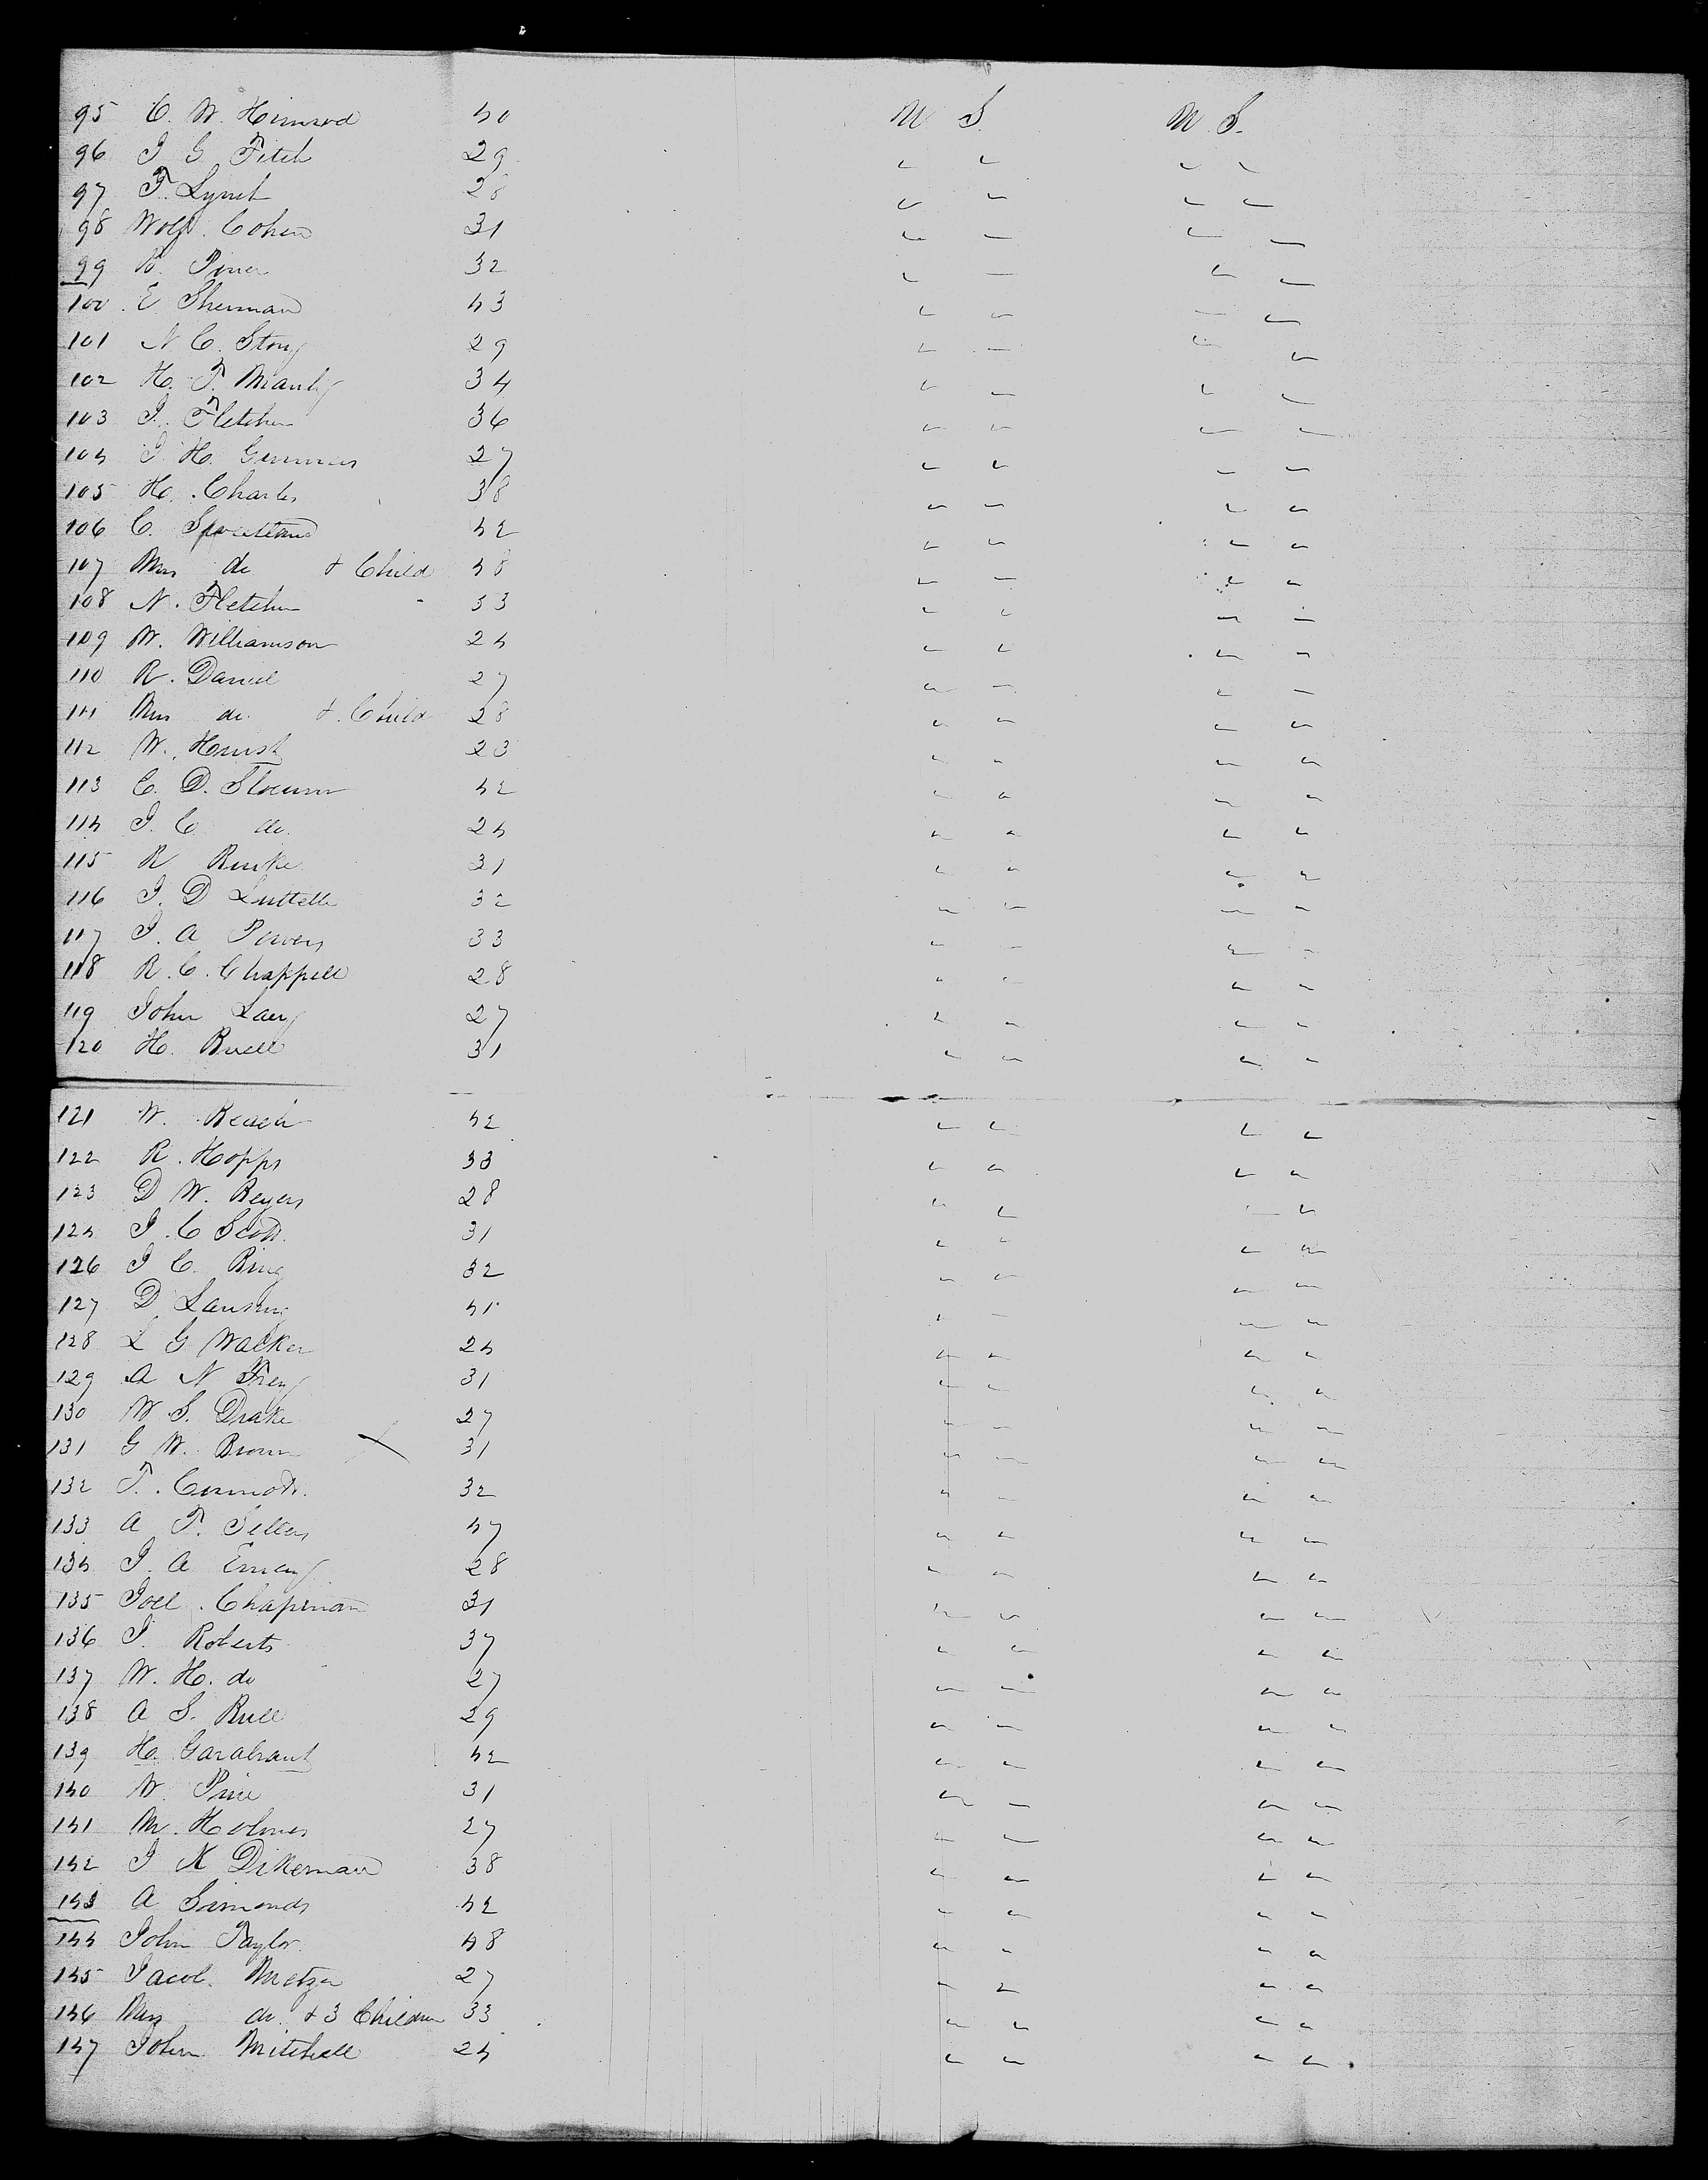 95 C. W. Himrod 40 U S. U S.
96 J G Fitch 29 " " " "
97 T. Lynch 28 " " " "
98 Wolf. Cohen 31 " " " "
99 B. 32 " " " "
100 E Sherman 43 " " " "
101 N C. Story 29 " " " "
102 H. T. Manly 34 " " " "
103 J. Fletcher 36 " " " "
104 J H. 27 " " " "
105 H. Charles 38 " " " "
106 C. 42 " " " "
107 Mrs do & Child 48 " " " "
108 N. Fletcher 33 " " " "
109 W. Williamson 24 " " " "
110 R. Daniel 27 " " " "
111 Mrs do & Child 28 " " " "
112 W. Hurst 23 " " " "
113 C. D. Slocum 42 " " " "
114 J. C do 24 " " " "
115 R 31 " " " "
116 J. D Luttelle 32 " " " "
117 J. A Powers 33 " " " "
118 R. C. Chappell 28 " " " "
119 John 27 " " " "
120 H. Buell 31 " " " "
121 W. Beach 42 " " " "
122 R. Hopps 33 " " " "
123 D W. Beyers 28 " " " "
124 J. C Scott. 31 " " " "
126 J C. Ring 32 " " " "
127 D Lansing 41 " " " "
128 L G Walker 24 " " " "
129 A N Frey 31 " " " "
130 W S. Drake 27 " " " "
131 G W. Brown 31 " " " "
132 T. 32 " " " "
133 A T. Sellers 47 " " " "
134 J. A Emery 28 " " " "
135 Joel. Chapman 31 " " " "
136 J. Roberts 37 " " " "
137 W. H. do 27 " " " "
138 A S. Bull 29 " " " "
139 H. Garabrant 42 " " " "
140 W. 31 " " " "
141 M. Holmes 27 " " " "
142 J K Dikeman 38 " " " "
143 A Simonds 42 " " " "
144 John Taylor 48 " " " "
145 Jacob. Metzger 27 " " " "
146 Mrs do. & 3 Children 33 " " " "
147 John Mitchell 24 " " " "